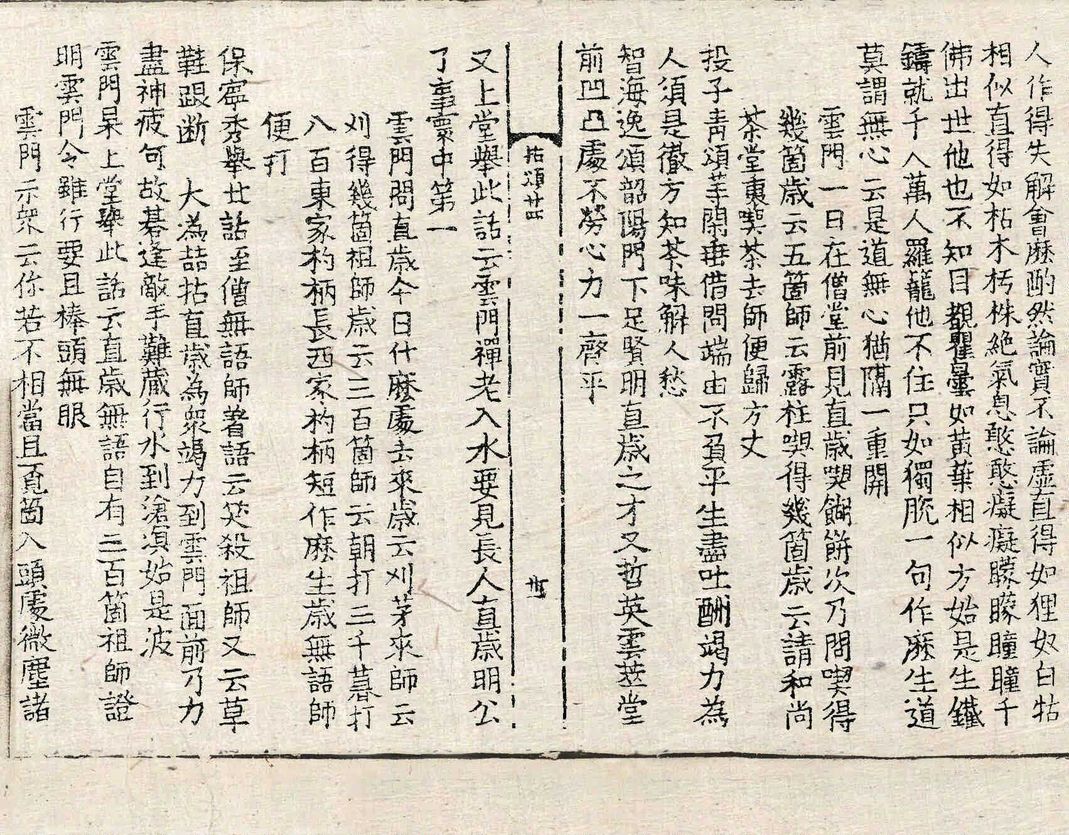 人作得失解會麽酌然論實不論虛直得如狸奴白牯
相似直得如枯木朽株絶氣息憨憨癡癡矇矇瞳瞳千
佛出世他也不知目覩瞿曇如黃葉相似方始是生鐵
鑄就千人萬人羅籠他不住只如獨脫一句作麽生道
莫謂無心云是道無心猶隔一重關
雲門一日在僧堂前見直歲喫餬餅次乃問喫得
幾箇歲云五箇師云露柱喫得幾箇歲云請和尚
茶堂裏喫茶去師便歸方丈
投子靑頌等閑垂借問端由不負平生盡吐酬竭力爲
人須是徹方知茶味解人愁
智海逸頌韶陽門下足賢明直歲之才又哲英雲茲堂
前凹凸處不勞心力一齊平
拈頌廿
又上堂擧此話云雲門禪老入水要見長人直歲明公
了事衆中第一
雲門問直歲今日什麽處去來歲云刈茅來師云
刈得幾箇祖師歲云三百箇師云朝打三千暮打
八百東家杓柄長西家杓柄短作麽生歲無語師
便打
保寧秀擧此話至僧無語師着語云笑殺祖師又云草
鞋跟断 大潙喆拈直歲爲衆竭力到雲門面前乃力
盡神疲句故碁逢敵手難藏行水到滄溟始是波
雲門杲上堂擧此話云直歲無語自有三百箇祖師證
明雲門令雖行要且棒頭無眼
雲門示衆云你若不相當且覓箇入頭處微塵諸